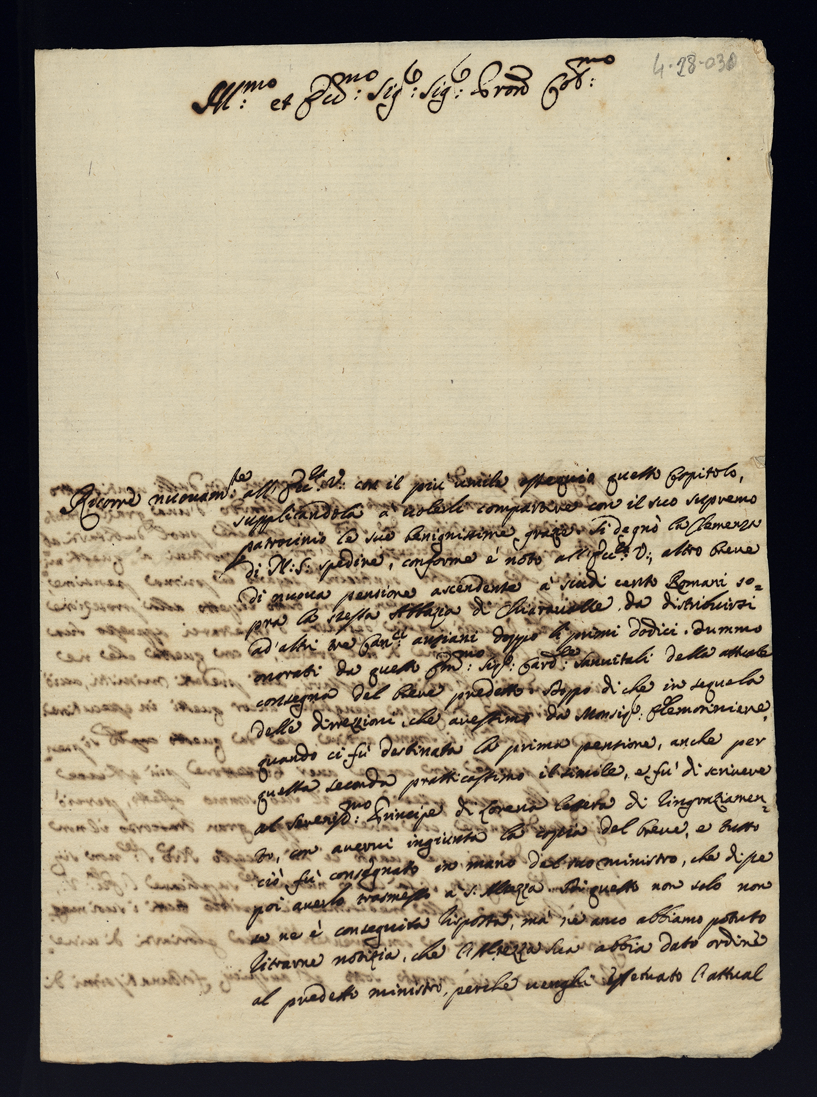 4-28-030
Ill:mo et Ecc:mo Sig:r Sig:r Pron Col:mo
Ricorre nuovam:te all'Ecc:za V: con il più umile ossequio questo Capitolo,
supplicandola à volerli compartire con il suo supremo
patrocinio le sue benignissime grazie. Si degnò la Clemenza
di N: S: spedire, conforme è noto all'Ecc:za V:, altro breve
di nuova pensione ascendente à scudi cento Romani so=
pra la stessa Abbazia di Chiaravalle da distribuirsi
ad altri tre Can:ci anziani doppo li primi dodici. Fummo
onorati da questo Em:mo Sig:r Card:le Sanvitali della attuale
consegna del breve predetto. Doppo di che in sequela
delle direzzioni, che avessimo da Monsig:r
quando ci fù destinata la prima pensione, anche per
questa seconda pratticassimo il simile, e fù di scrivere
al Serenis:mo Principe di Lorena lettera di ringraziamen=
to, con avervi ingiunta la copia del breve, e tutto
ciò fù consegnato in mano del suo ministro, che disse
poi averlo trasmesso à S: Altezza. Di questo non solo non
se ne è conseguita risposta, mà nè anco abbiamo potuto
ritrarne notizia, che l'Altezza Sua abbia dato ordine
al predetto ministro, perche venghi effetuato l'attual